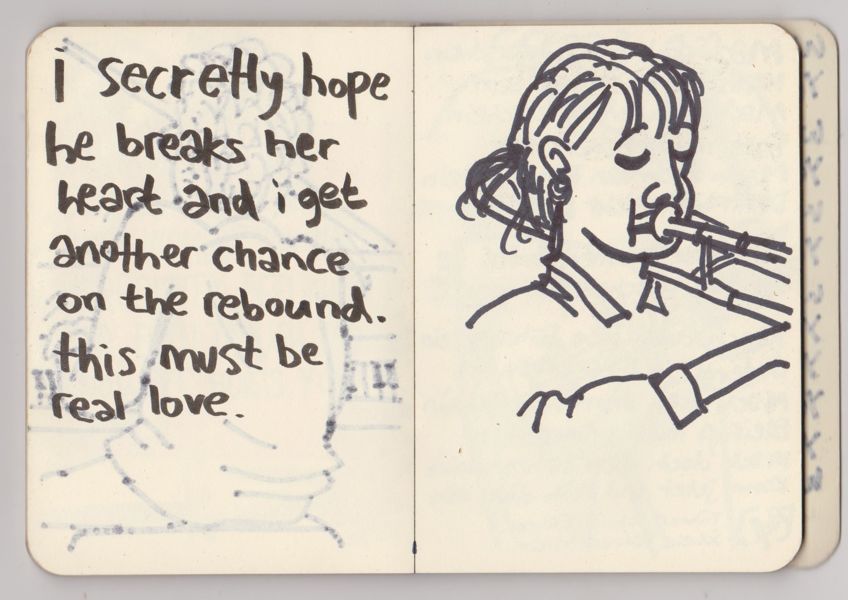 i secretly hope
he breaks her
heart and i get
another chance
on the rebound.
this must be
real love.